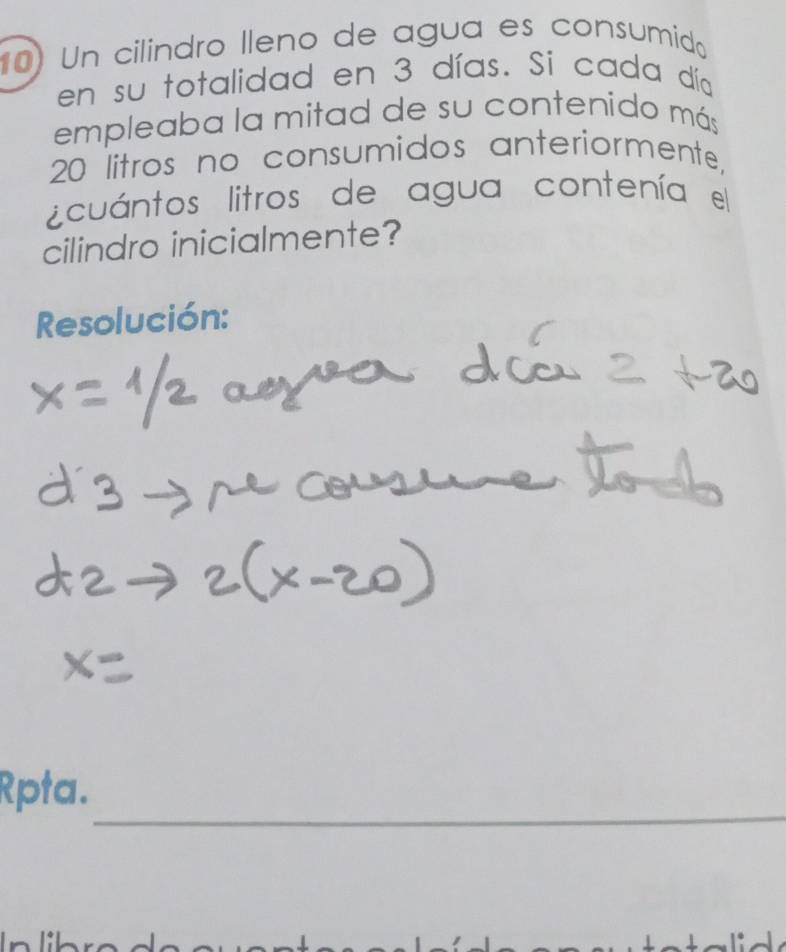 10) Un cilindro lleno de agua es consumido
en su totalidad en 3 días. Si cada día
empleaba la mitad de su contenido más
20 litros no consumidos anteriormente,
¿cuántos litros de agua contenía el
cilindro inicialmente?
Resolución:
x = 1/2 agua día 2 +20
d3 → se consume todo
d2 → 2(x-20)
x=
Rpta.